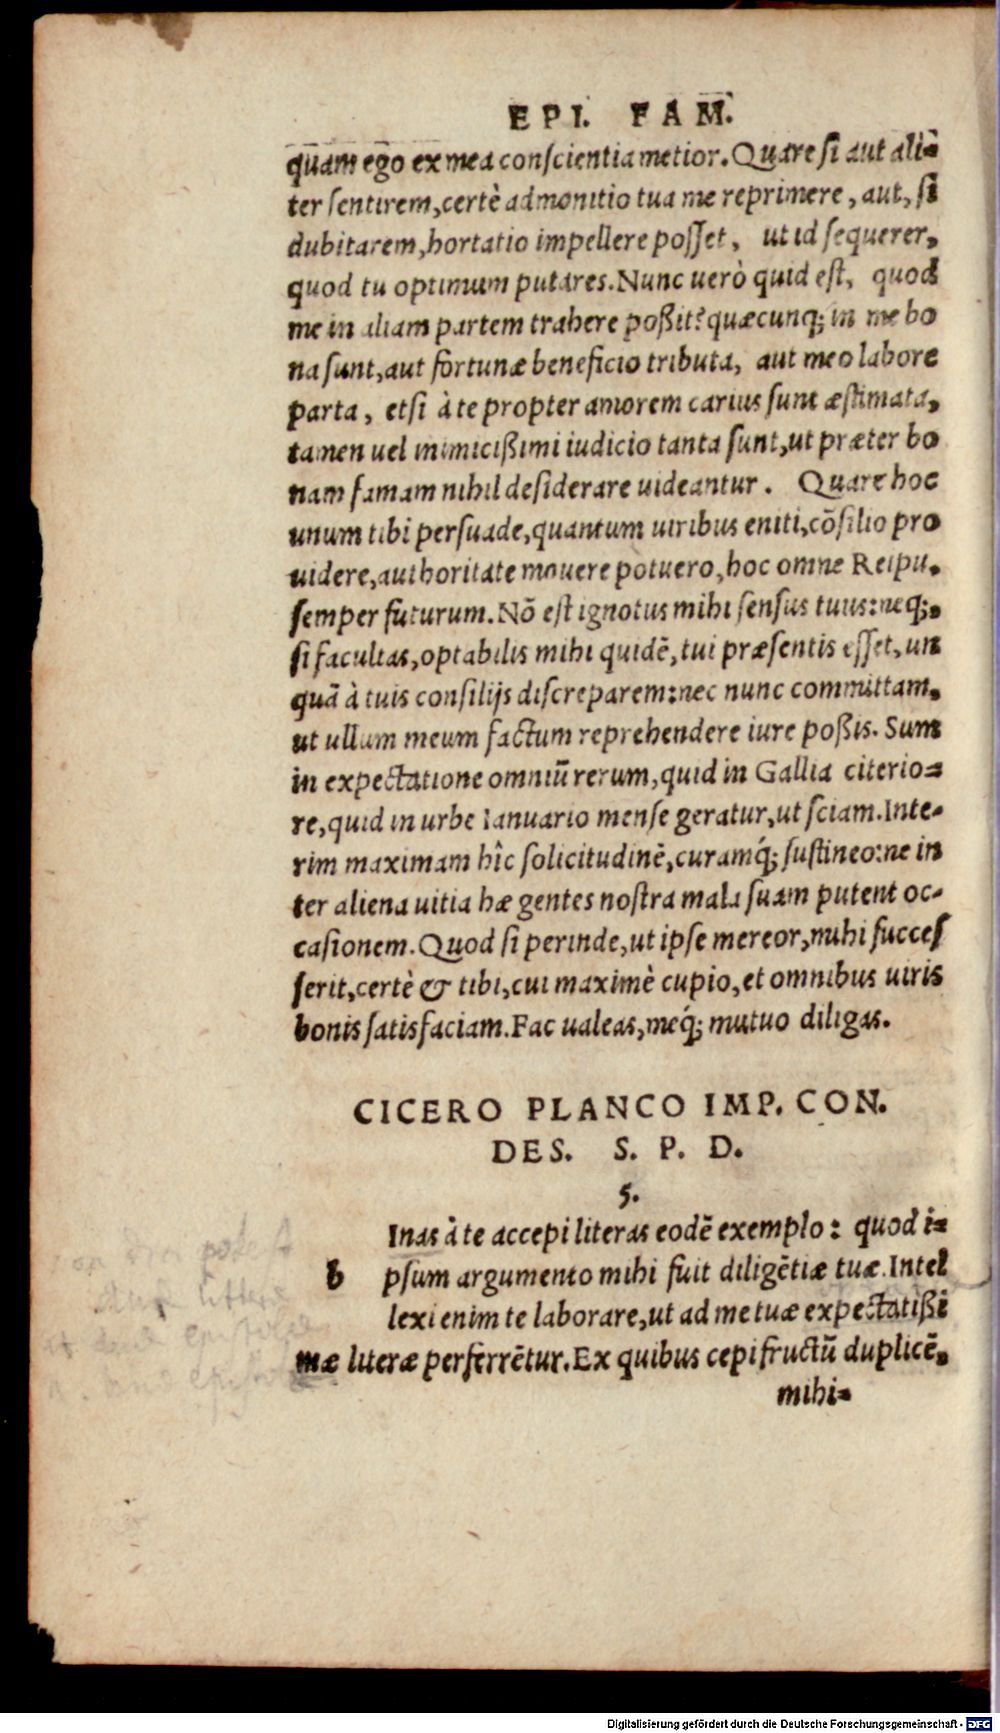 EPI. FAM.
quam ego ex mea conscientia metior. Quare si aut ali=
ter sentirem, certè admonitio tua me reprimere, aut, si
dubitarem, hortatio impellere posset, ut id sequerer,
quod tu optimum putares. Nunc uerò quid est, quod
me in aliam partem trahere poßit? quæcunq; in me bo
na sunt, aut fortunæ beneficio tributa, aut meo labore
parta, etsi à te propter amorem carius sunt æstimata,
tamen uel inimicißimi iudicio tanta sunt, ut præter bo
nam famam nihil desiderare uideantur. Quare hoc
unum tibi persuade, quantum uiribus eniti, cõsilio pro
uidere, authoritate mouere potuero, hoc omne Reipu.
semper futurum. Nõ est ignotus mihi sensus tuus: neq;,
si facultas, optabilis mihi quidē, tui præsentis esset, un
quã à tuis consilijs discreparem: nec nunc committam,
ut ullum meum factum reprehendere iure poßis. Sum
in expectatione omniũ rerum, quid in Gallia citerio=
re, quid in urbe Ianuario mense geratur, ut sciam. Inte=
rim maximam hîc solicitudinē, curamq́; sustineo: ne in
ter aliena uitia hæ gentes nostra mala suam putent oc=
casionem. Quod si perinde, ut ipse mereor, mihi succes
serit, certè & tibi, cui maximè cupio, et omnibus uiris
bonis satisfaciam. Fac ualeas, meq́; mutuo diligas.
CICERO PLANCO IMP. CON.
DES. S. P. D.
5.
Inas à te accepi literas eodē exemplo: quod i=
b psum argumento mihi fuit diligētiæ tuæ. Intel
lexi enim te laborare, ut ad me tuæ expectatißi
mæ literæ perferrētur. Ex quibus cepi fructũ duplicē,
mihi=
Digitalisierung gefördert durch die Deutsche Forschungsgemeinschaft - DFG